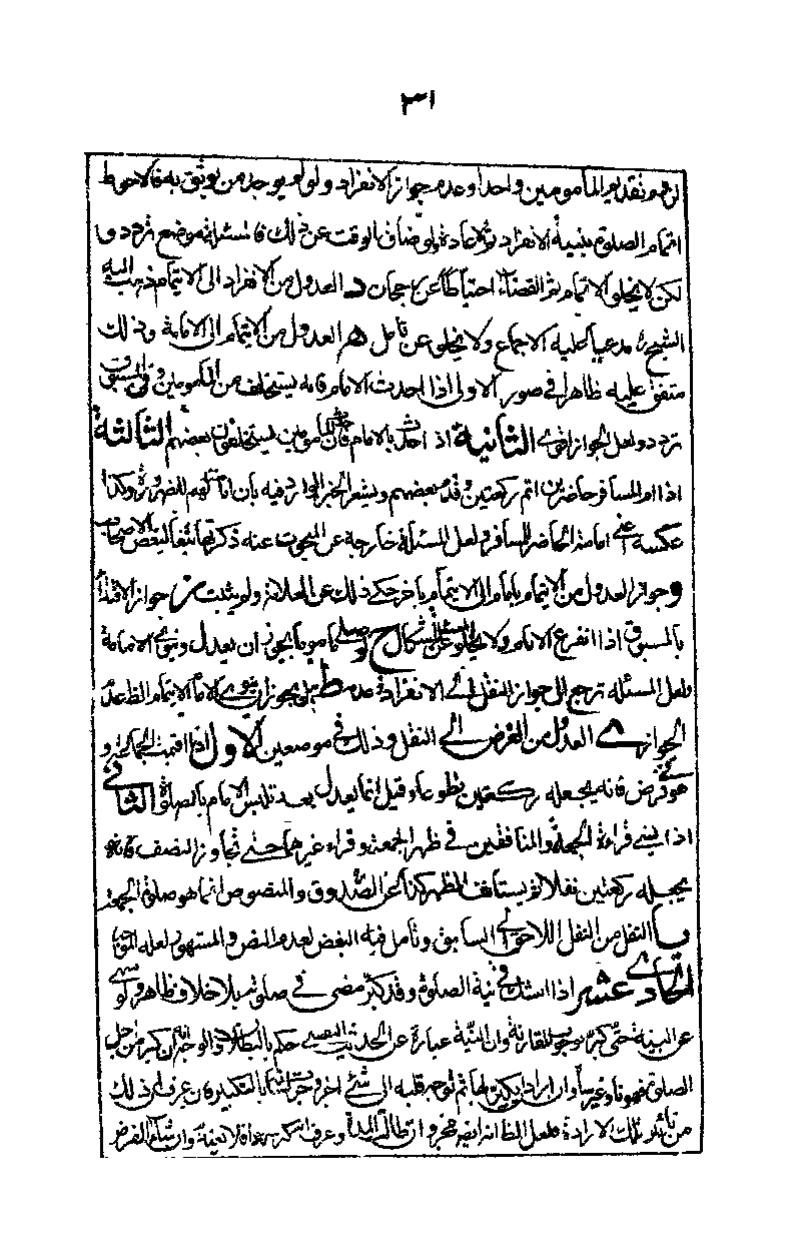 ٣١
لزم تقديم المأمومين واحدا وعدم جواز الانفراد ولو لم يوجد من يوثق به فالاحوط
اتمام الصلوة بنية الانفراد ثم الاعادة ولو ضاق الوقت عن ذلك موضع تردد و
لكن لا يخلو الاتمام ثم القضاء احتياطا عن رجحان د العدول من الانفراد الى الايتمام ذهب اليه
الشيخ ره مدعيا عليه الاجماع ولا يخلو عن تامل هم العدول من الايتمام الى الامامة وذلك
متفق عليه ظاهرا في صور الاولى اذا احدث الامام فانه يستخلف من المأمومين وفي المسبوق
تردد ولعل الجواز اقوى الثانية اذ احدث بالامام فان المامومين يستخلفون بعضهم الثالثة
اذا ام المسافر حاضرين اتم ركعتين وقدم بعضهم ويشعر الخبر الوارد فيه بان وكذا
عكسه اعنى امامة الحاضر للمسافر ولعل المسئلة خارجة عن المبحوث عنه ذكرتها تبعا لبعض الاصحاب
و جواز العدول من الايتمام بامام الى الايتمام باخر حكى ذلك عن العلامة ولم يثبت ز جواز الاقتداء
بالمسبوق اذا انفرغ الامام ولا يخلو عن اشكال ح لو صلى ماموما يجوز ان يعدل وينوي الامامة
ولعل المسئلة ترجع الى جواز النقل الى الانفراد وعدمه ط هل يجوز ان ينوي الامام الايتمام الظ عدم
الجواز ى العدول من الفرض الى النقل وذلك في موضعين الاول اذا اقيمت الجماعة و
هو في فرض فانه يجعله ركعتين تطوعا وقيل انما يعدل بعد تلبس الامام بالصلوة الثاني
اذا نسى قراءة الجمعة والمنافقين في ظهر الجمعة وقراء غيرهما حتى تجاوز النصف فانه
يجعله ركعتين نفلا ثم يستانف الظهر كذا عن الصدوق والمنصوص انما هو صلوة الجمعة
يا النقل من النفل اللاحق الى السابق وتامل فيه البعض لعدم النص والمشهور لعله الجواز
الحادي عشر اذا شك في نية الصلوة وقد كبر مضى في صلوته بلا خلاف ظاهر ولو سهى
عن النية حتى كبر لوجوب المقارنة وان النية عبارة عن الحديث النفسي حكم بالبطلان والوجه ان كبر من اجل
الصلوة فهو ناو غير ساه وان اراد ان يكبر لها ثم توجه قلبه الى شئ اخر وجرى لسانه بالتكبير فان عرف ان ذلك
من تاثير تلك الارادة فلعل الظ انه ايضا مجز وان طالت المدة وعرف انه كبر فلا نية وان شاء الفرض